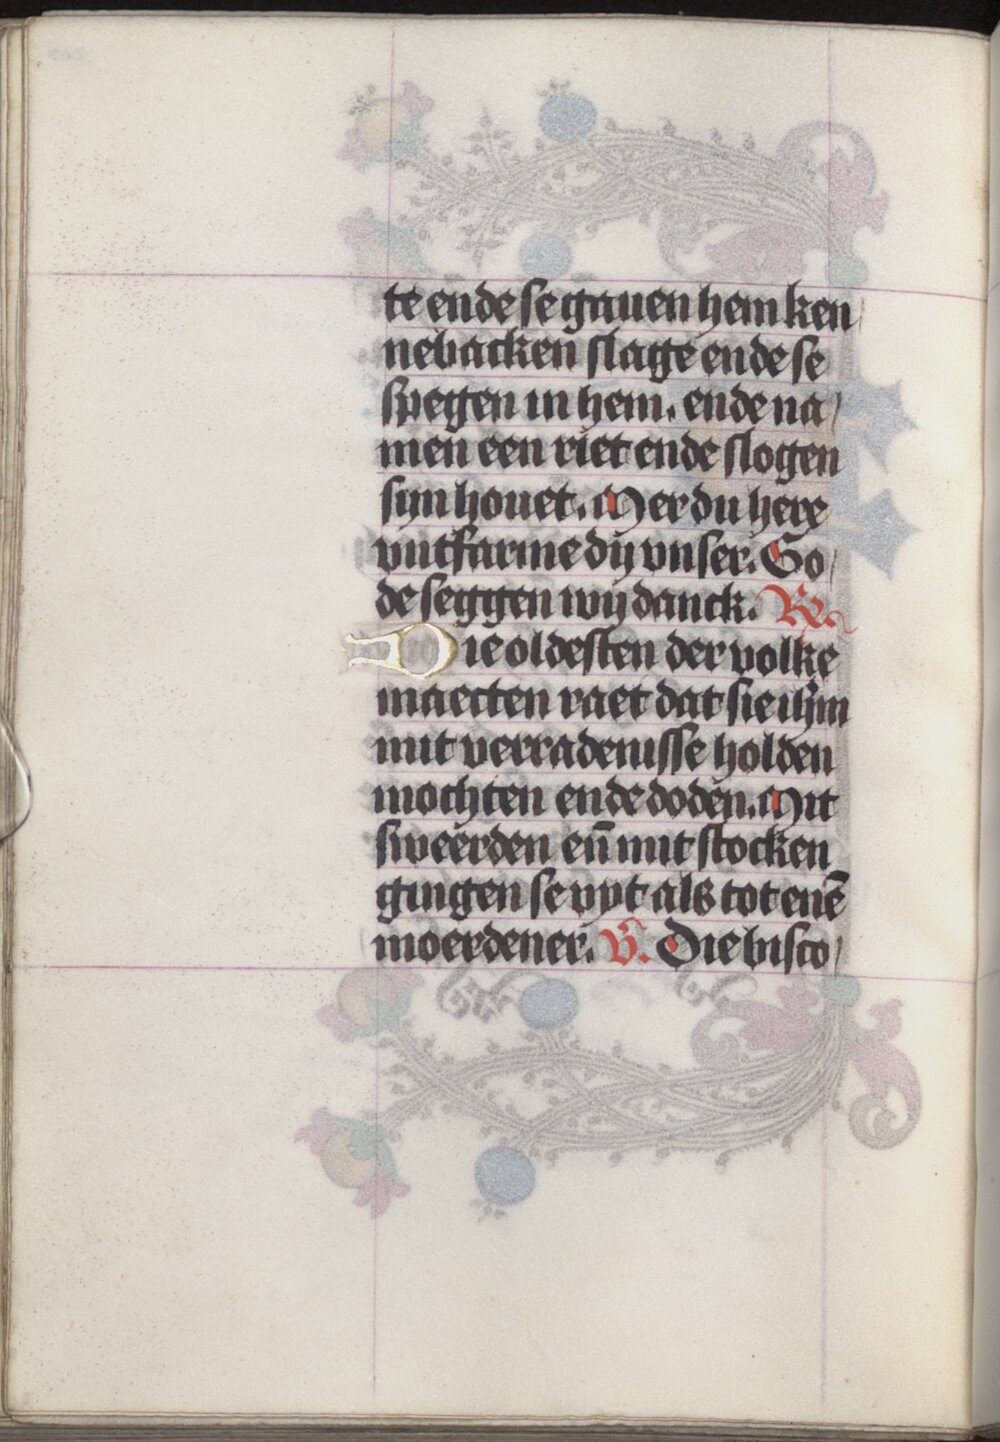 te ende se gauen hem ken
nebacken slage ende se
spegen in hem. ende na
men een riet ende slogen
syn houet. Mer du here
vntfarme dy vnser. Go
de seggen wy danck. R.
Die oldesten der volke
maecten raet dat sie ihm
mit verradenisse holden
mochten ende doden. Mit
sweerden en̄ mit stocken
gingen se vyt als tot enē
moerdener. V. Die bisco